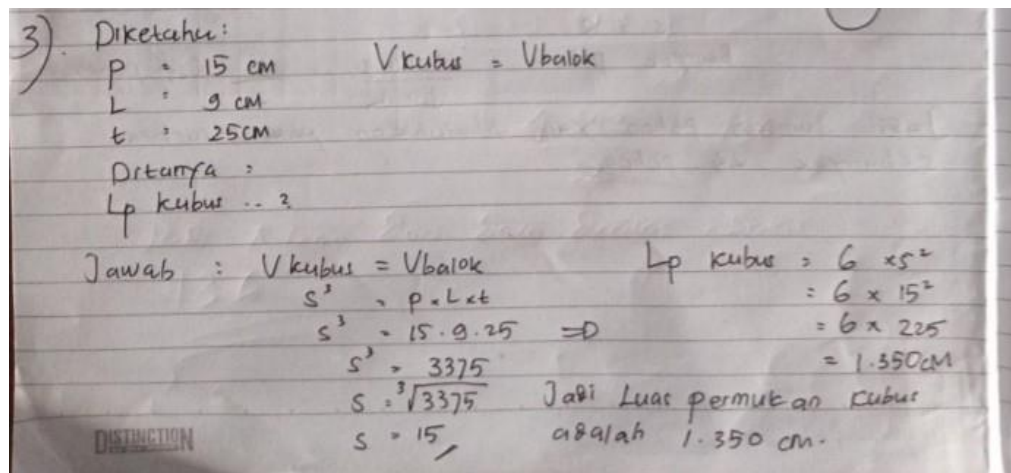 3). Diketahui:
P = 15 cm
V kubus = V balok
L = 9 cm
t = 25 cm
Ditanya :
Lp kubus .. ?
Jawab : V kubus = V balok
s³ = p.L×t
s³ = 15.9.25 =D
s³ = 3375
s = ³√3375
s = 15
Lp kubus = 6 × s²
= 6 × 15²
= 6 × 225
= 1.350 cm
Jadi Luas permukan kubus
adalah 1.350 cm.
DISTINCTION